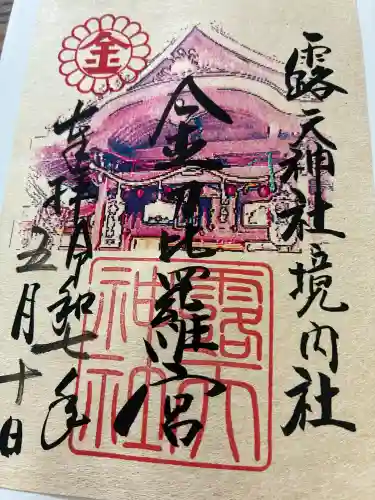 露天神社境内社
金毘羅宮
奉拝 令和七年
五月十日
金
露天
神社